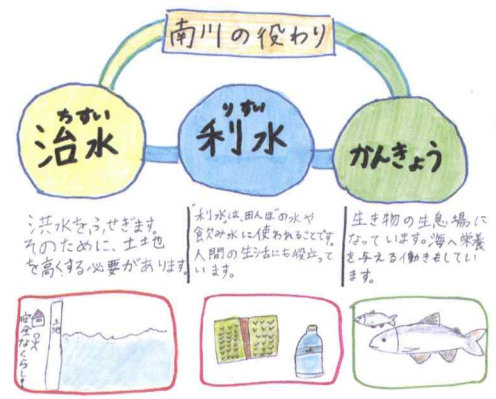 南川の役わり
ちすい
治水
りすい
利水
かんきょう
洪水をふせぎます。
そのために、土地
を高くする必要があります。
利水は、田んぼの水や
飲み水に使われることです。
人間の生活にも役立って
います。
生き物の生息場に
なっています。海へ栄養
を与える働きもしてい
ます。
安全なくらし
土地
水